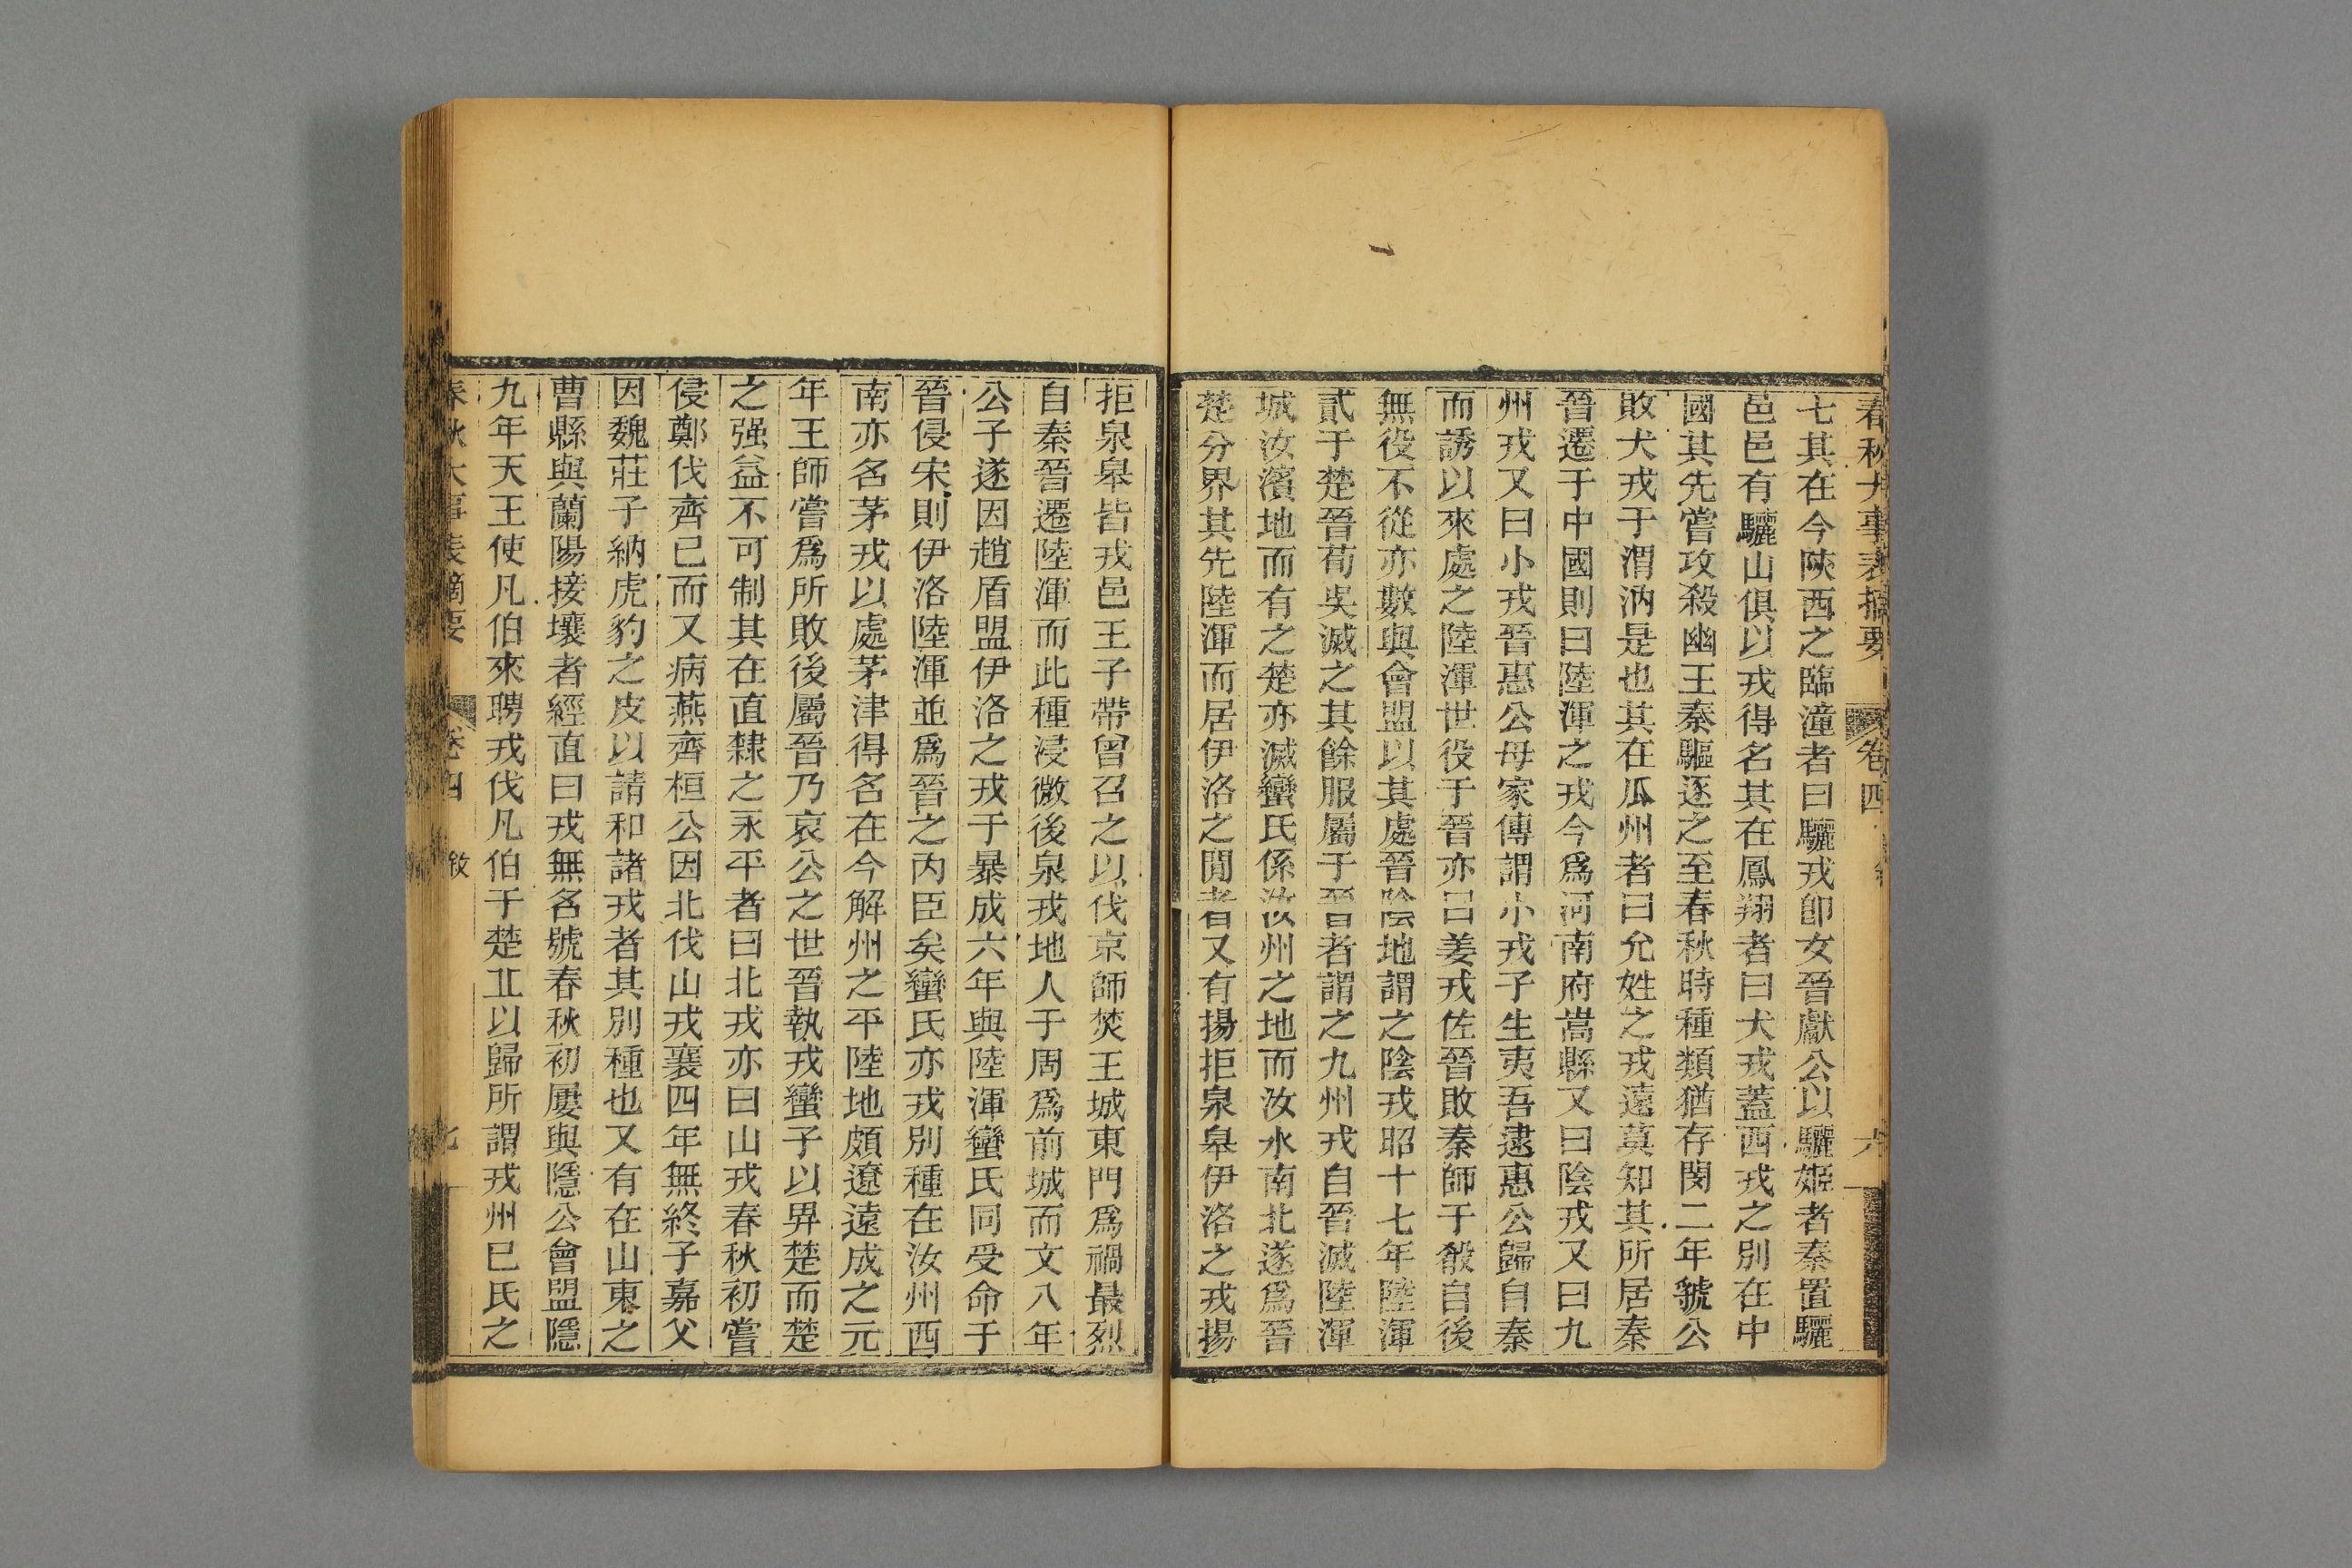 春秋大事表摘要 卷四 六
七其在今陝西之臨潼者曰驪戎卽女晉獻公以驪姬者秦置驪
邑邑有驪山俱以戎得名其在鳳翔者曰犬戎蓋西戎之別在中
國其先嘗攻殺幽王秦驅逐之至春秋時種類猶存閔二年虢公
敗犬戎于渭汭是也其在瓜州者曰允姓之戎遠莫知其所居秦
晉遷于中國則曰陸渾之戎今爲河南府嵩縣又曰陰戎又曰九
州戎又曰小戎晉惠公母家傳謂小戎子生夷吾逮惠公歸自秦
而誘以來處之陸渾世役于晉亦曰姜戎佐晉敗秦師于殽自後
無役不從亦數與會盟以其處晉陰地謂之陰戎昭十七年陸渾
貳于楚晉荀吳滅之其餘服屬于晉者謂之九州戎自晉滅陸渾
城汝濱地而有之楚亦滅蠻氏係汝州之地而汝水南北遂爲晉
楚分界其先陸渾而居伊洛之閒者又有揚拒泉皋伊洛之戎揚
拒泉皋皆戎邑王子帶曾召之以伐京師焚王城東門爲禍最烈
自秦晉遷陸渾而此種浸微後泉戎地人于周爲前城而文八年
公子遂因趙盾盟伊洛之戎于暴成六年與陸渾蠻氏同受命于
晉侵宋則伊洛陸渾並爲晉之內臣矣蠻氏亦戎別種在汝州西
南亦名茅戎以處茅津得名在今解州之平陸地頗遼遠成之元
年王師嘗爲所敗後屬晉乃哀公之世晉執戎蠻子以畀楚而楚
之强益不可制其在直隸之永平者曰北戎亦曰山戎春秋初嘗
侵鄭伐齊已而又病燕齊桓公因北伐山戎襄四年無終子嘉父
因魏莊子納虎豹之皮以請和諸戎者其別種也又有在山東之
曹縣與蘭陽接壤者經直曰戎無名號春秋初屢與隱公會盟隱
九年天王使凡伯來聘戎伐凡伯于楚丘以歸所謂戎州巳氏之
春秋大事表摘要 卷四 敘